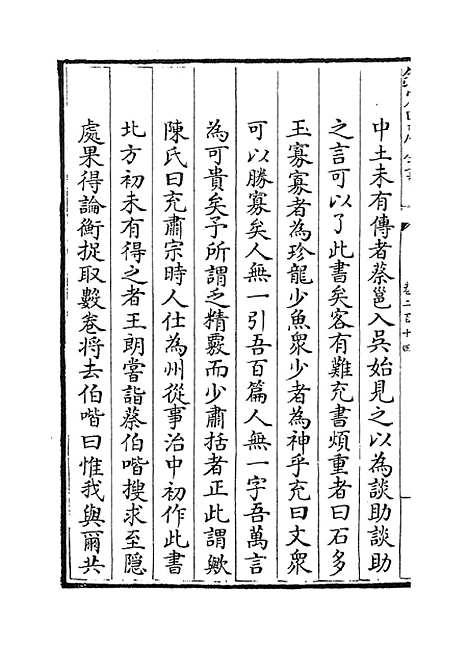 中土未有傳者蔡邕入吳始見之以為談助談助
之言可以了此書矣客有難充書煩重者曰石多
玉寡寡者為珍龍少魚衆少者為神乎充曰文衆
可以勝寡矣人無一引吾百篇人無一字吾萬言
為可貴矣予所謂之精覈而少肅括者正此謂歟
陳氏曰充肅宗時人仕為州從事治中初作此書
北方初未有得之者王朗嘗詣蔡伯喈搜求至隱
處果得論衡捉取數卷将去伯喈曰惟我與爾共
卷二百十四